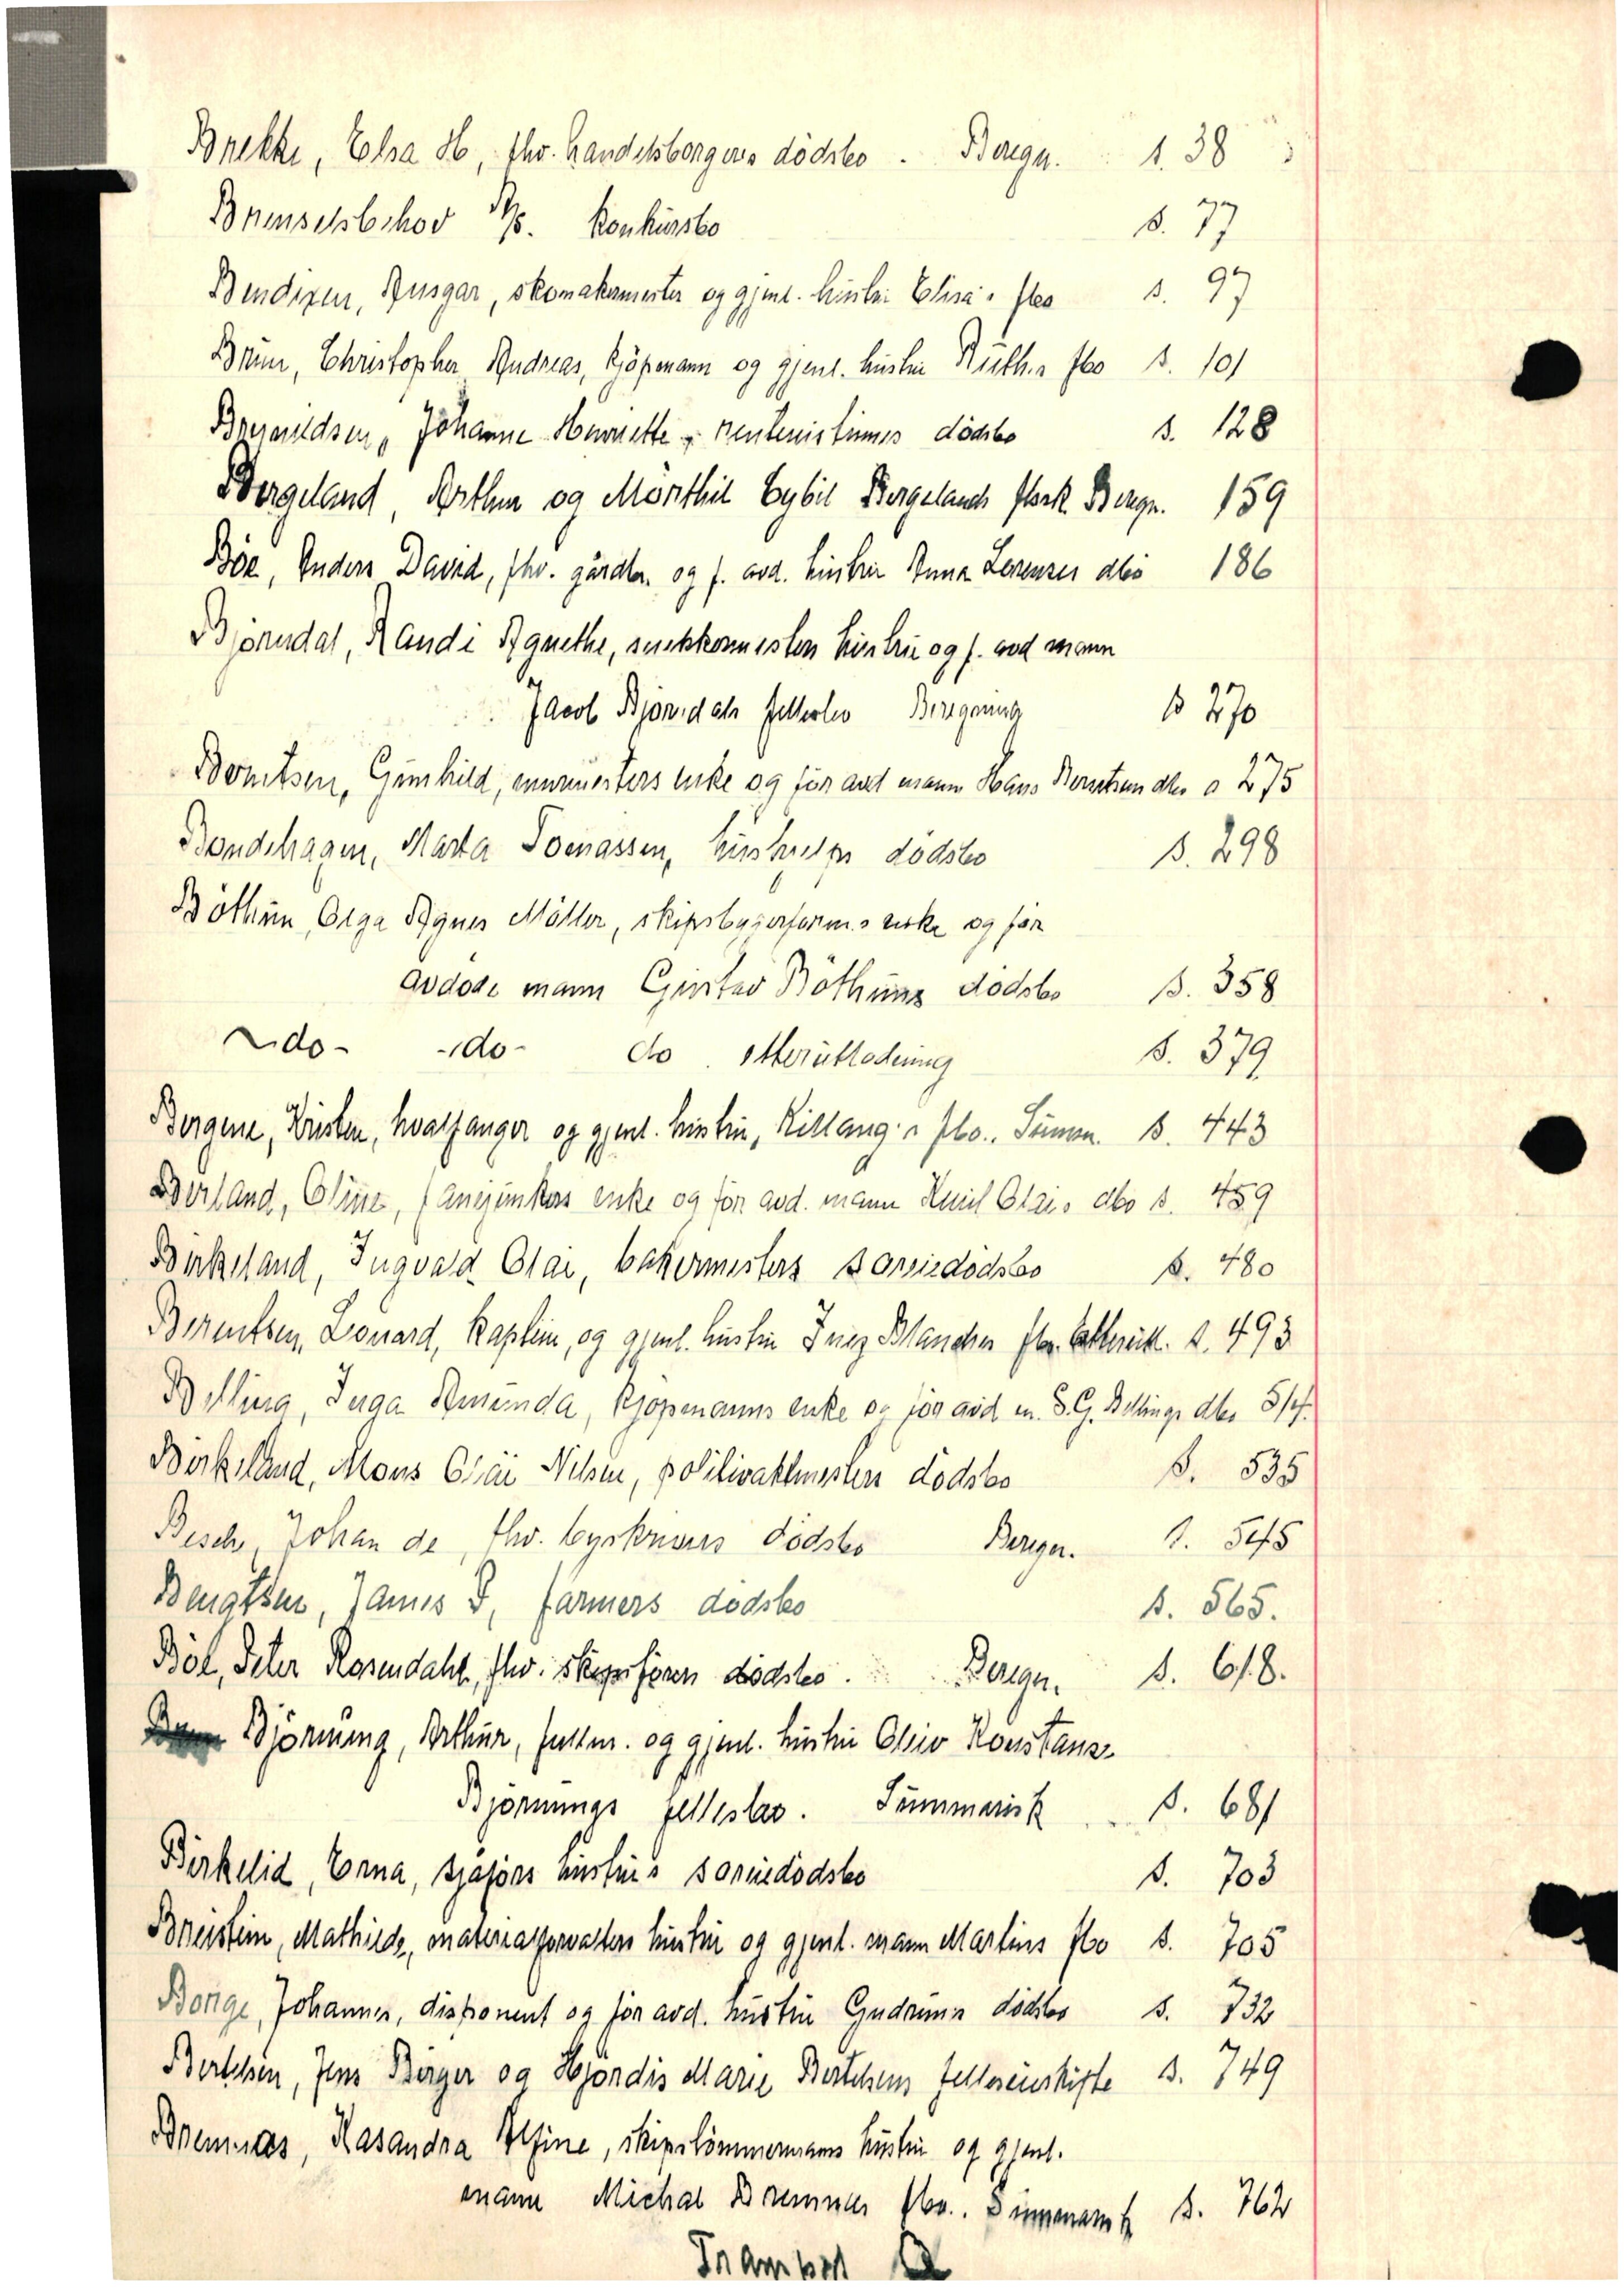 Brekke, Elsa H, fhv. handelsborgers dödsbo. Beregn. s. 38
Brenselsbehov A/S. konkursbo s. 77
Bendixen, Ansgar, skomakermester og gjenl. hustru Elisa's fbo s. 97
Brun, Christopher Andreas, kjöpmann og gjenl. hustru Ruth's fbo s. 101
Brynildsen, Johanne Henriette, rentenistinnes dödsbo s. 128
Bergeland, Arthur og Cybil Bergelands Beregn. 159
Böe, Anders David, fhv. gårdbr. og f. avd. hustru Anna Lorenzes dbo 186
Björndal, Randi Agnethe, snekkermesters hustru og f. avd mann
Jacob Björndals fellesbo Beregning s 270
Berntsen, Gunhild, murmesters enke og för avd mann Hans Berntsen dbo s 275
Bondehagen, Marta Tomassen, hushjelps dödsbo s. 298
Böthun, Olga Agnes Möller, skipsbyggerform.s enke og för
avdöde mann Gustav Böthuns dödsbo s. 358
-do- -do- do. etterutlodning s. 379
Bergene, Kristen, hvalfanger og gjenl. hustru, fbo.. Summ. s. 443
Berland, Oline, fanejunkers enke og för avd. mann Emil Olai's dbo s. 459
Birkeland, Ingvald Olai, bakermesters særeiedödsbo s. 480
Berentsen, Leonard, kaptein, og gjenl. hustru Inez Blanches fbo. Etterutl. s. 493
Belling, Inga Amunda, kjöpmanns enke og för avd m. S.G. Bellings dbo 514.
Birkeland, Mons Olai Nilsen, politivaktmesters dödsbo s. 535
Besche, Johan de, fhv. byskrivers dödsbo Beregn. s. 545
Bengtsen, James F, farmers dödsbo s. 565.
Böe, Peter Rosendahl, fhv. skipsförers dödsbo. Beregn. s. 618.
Björnung, Arthur, fullm. og gjenl. hustru Oliv Konstanse
Björnungs fellesbo. Summarisk s. 681
Birkelid, Erna, sjåförs hustru's særeiedödsbo s. 703
Breistein, Mathilde, materialforvalters hustru og gjenl. mann Martins fbo s. 705
Borge, Johannes, disponent og för avd. hustru Gudruns dödsbo s. 732
Bertelsen, Jens Birger og Hjördis Marie Bertelsens felleseieskifte s. 749
Bremnes, Kasandra Alfine, skipstömmermanns hustru og gjenl.
mann Michal Bremnes fbo.. Summarisk s. 762